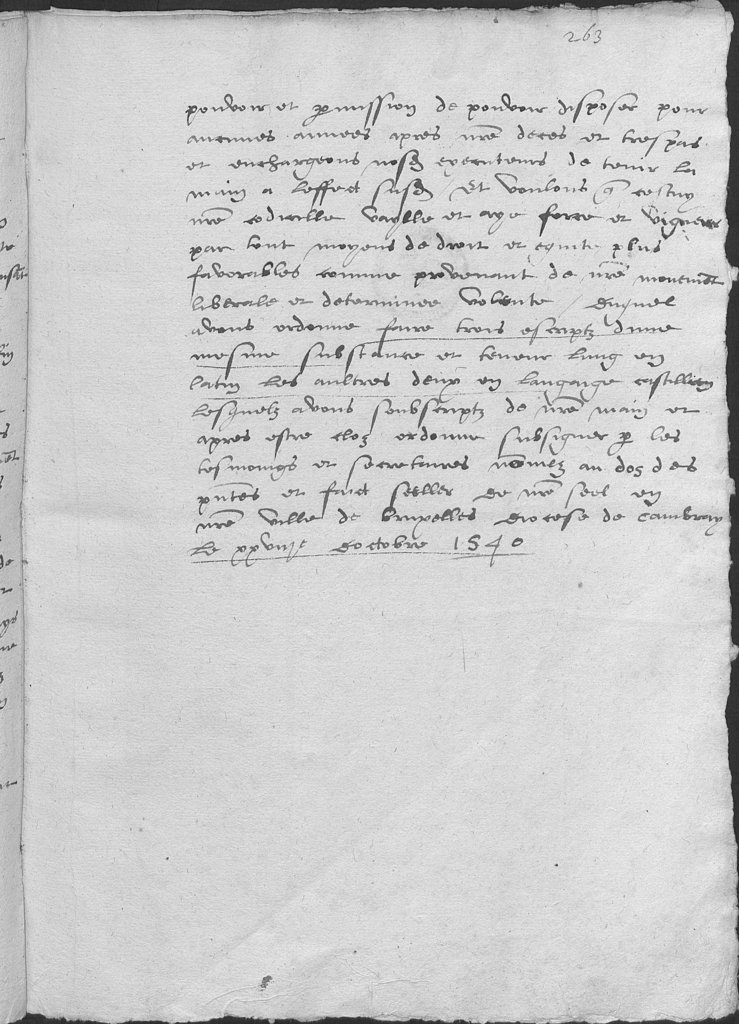 263
pouvoir et p̱mission de pouvoir disposer pour
aucunes annees apres nr̄e deces et trespas
et enchargeons nosd executeurs de tenir la
main a leffect susd / Et voulons q̄ cestuy
nr̄e codicille vaylle et aye force et vigueur
par tout moyens de droit et equite plus
favorables comme provenant de nr̄e mouvemēt
liberale et determinee volente / duquel
avons ordonne faire trois escriptz dune
mesme substance et teneur lung en
latin les aultres deux en langaige castillien
lesquelz avons soubscriptz de nr̄e main et
apres estre cloz ordonne subsigner p̱ les
tesmoings et secretaires nōmez au doz des
pn̄tes et faict seeller de nr̄e seel en
nr̄e ville de bruxelles diocese de Cambray
le xxviije doctobre 1540